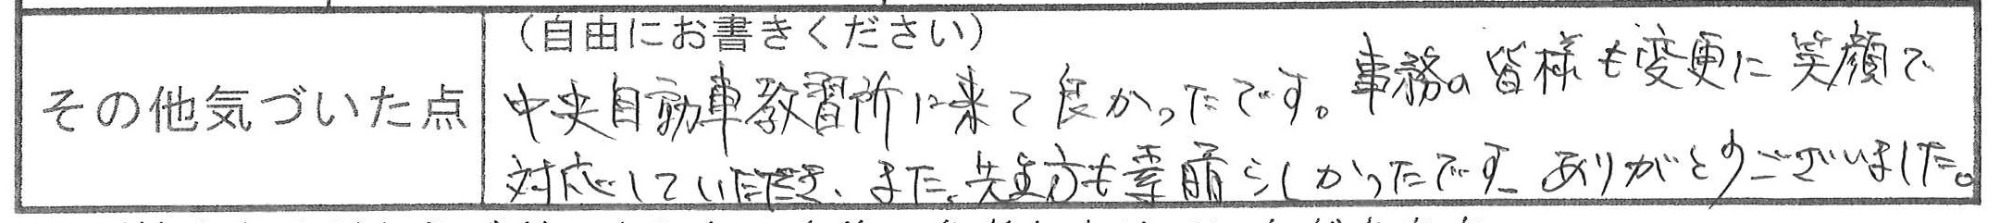 (自由にお書きください)
その他気づいた点
中央自動車教習所に来て良かったです。事務の皆様も変更に笑顔で
対応していただき、また、先生方も素晴らしかったです。ありがとうございました。